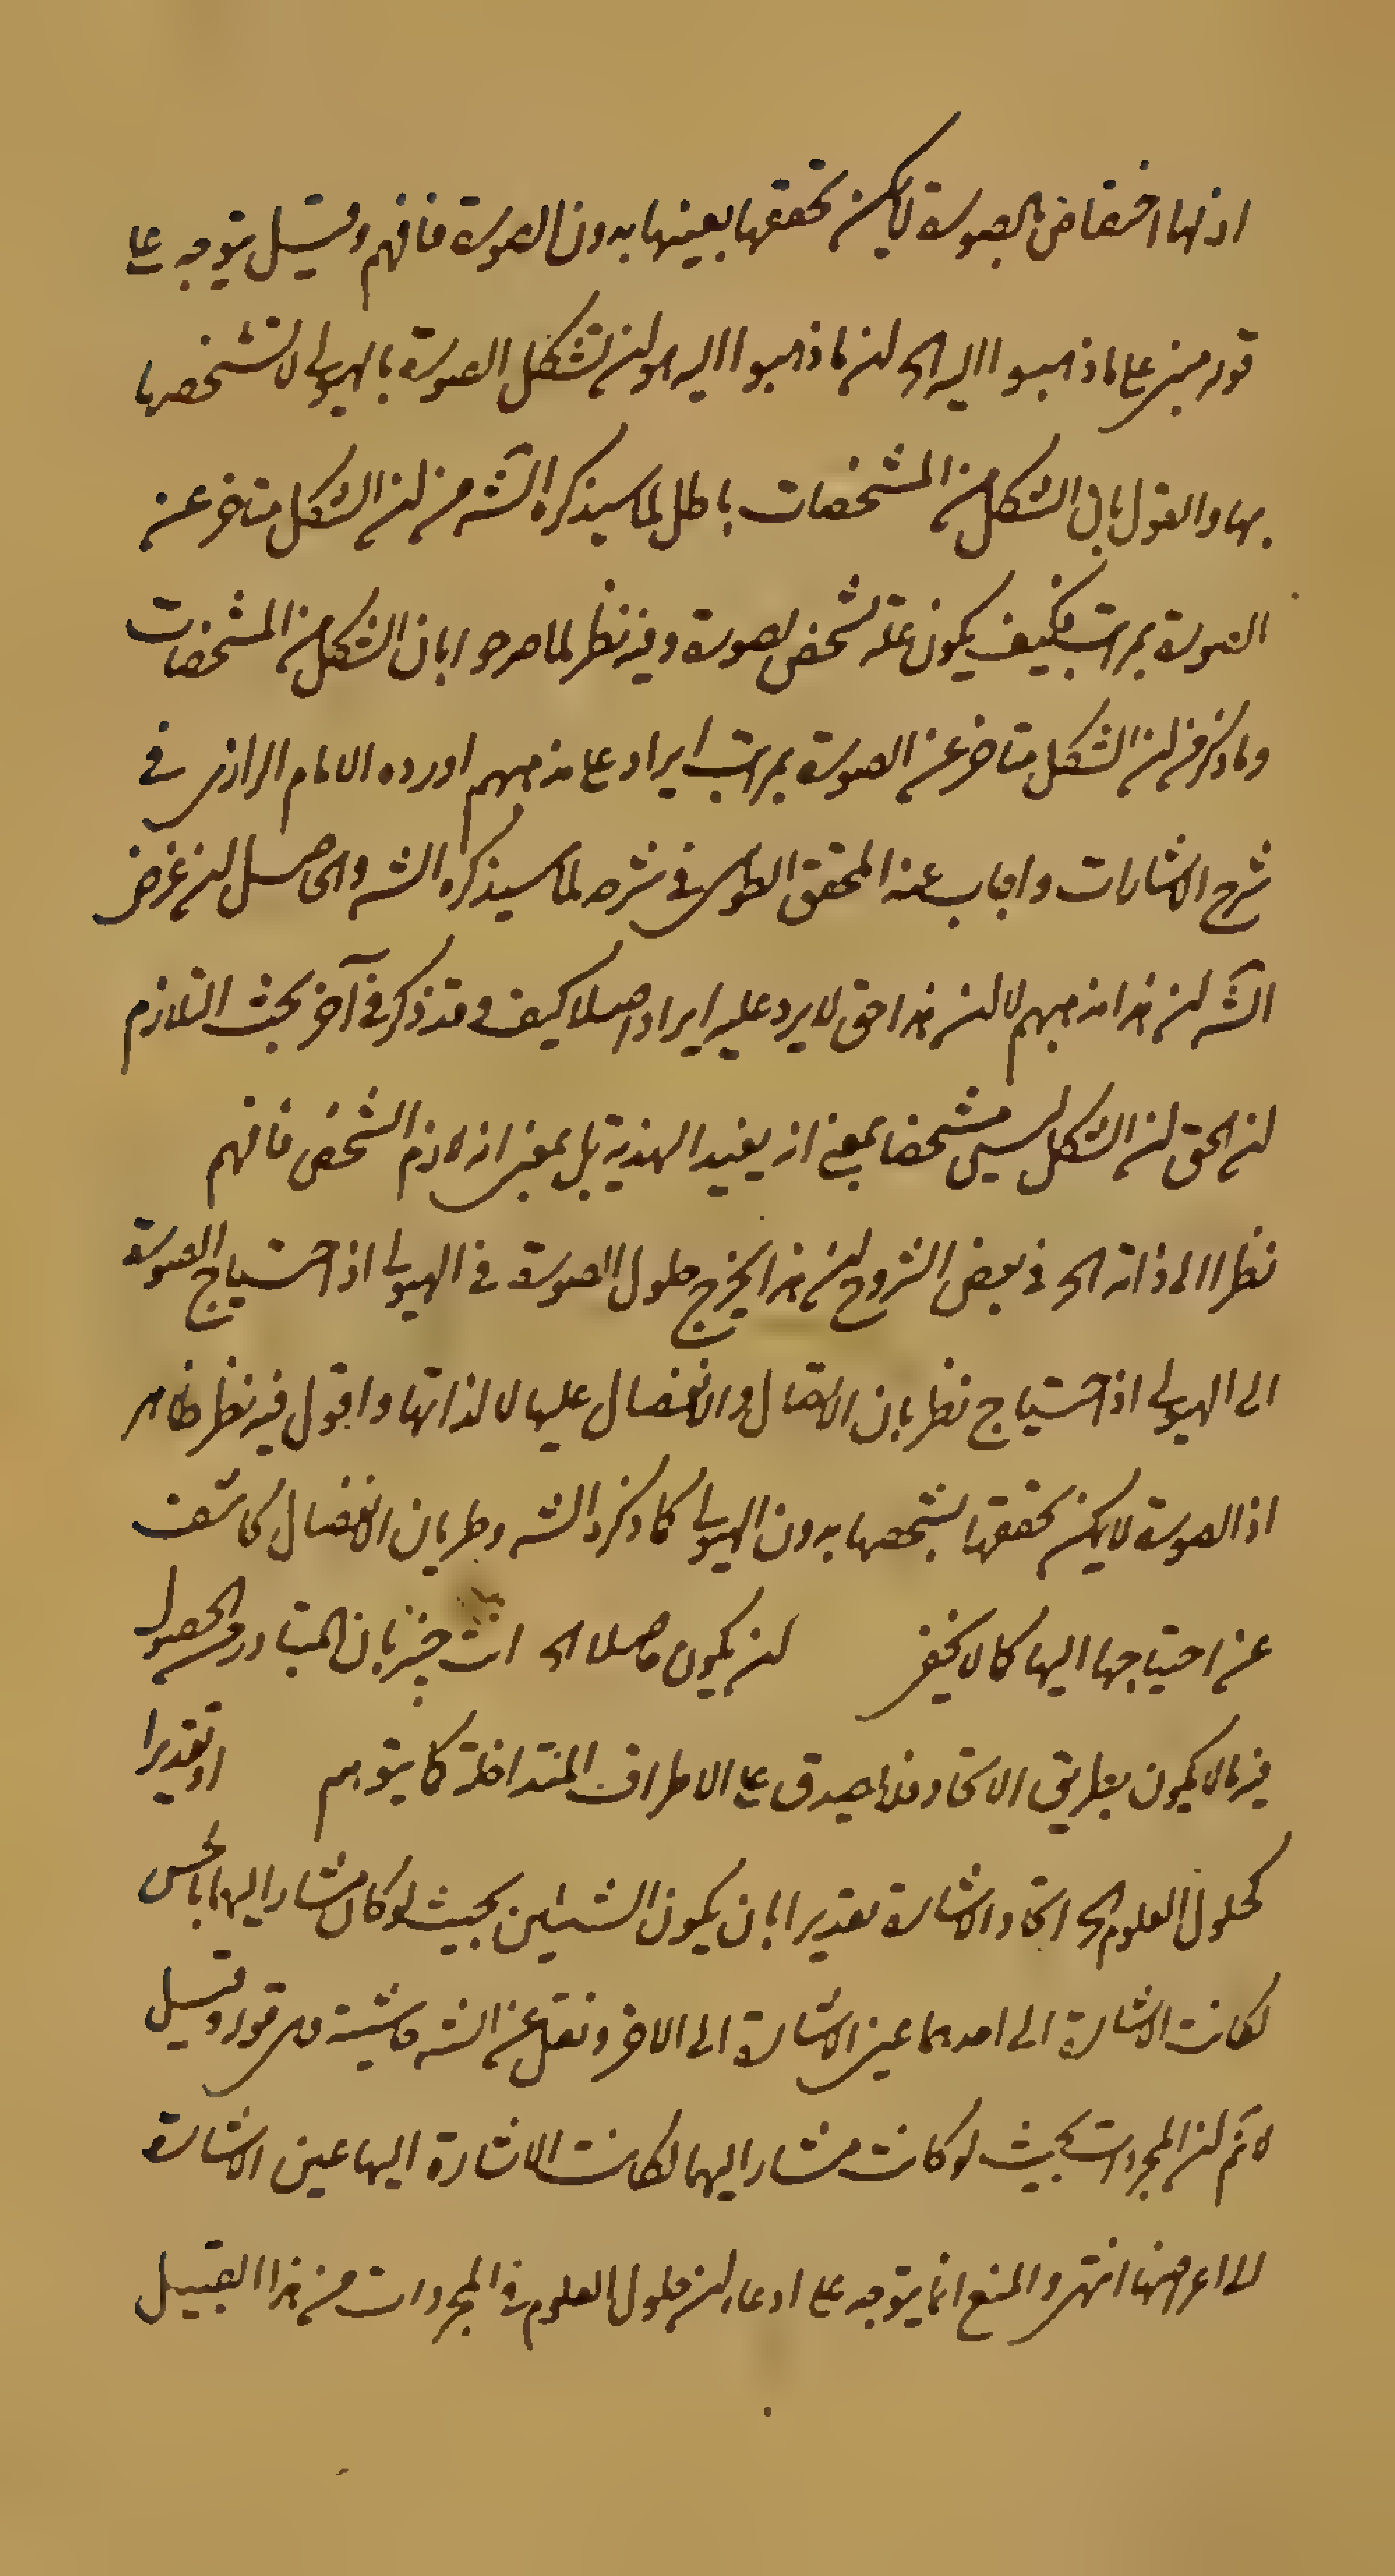 اذ لها اختصاص بالصورة لا يمكن تحققها بعينها بدون الصورة فافهم وقيل يتوجه على
قوله مبنى على ما ذهبوا اليه الى ان ما ذهبوا اليه هو ان تشكل الصورة بالهيولى لا تشخصها
بها والقول بان الشكل من المشخصات باطل لما سيذكره الشه من ان الشكل متاخر عن
الصورة بمراتب فكيف يكون علة تشخص الصورة وفيه نظر لما صرحوا بان الشكل من المشخصات
وما ذكر من ان الشكل متاخر عن الصورة بمراتب ايراد على مذهبهم اورده الامام الرازى في
شرح الاشارات واجاب عنه المحقق الطوسى في شرحه لما سيذكره الشه والحاصل ان غرض
الشه ان هذا مذهبهم لا ان هذا حق لا يرد عليه ايراد اصلا كيف وقد ذكر في آخر بحث التلازم
ان الحق ان الشكل ليس مشخصا بمعنى انه يفيد الهذية بل بمعنى انه لازم التشخص فافهم
نظرا الى ذاته الى في بعض الشروح ان هذا يخرج حلول الصورة في الهيولى اذ احتياج الصورة
الى الهيولى اذ احتياج نظر بان الاتصال والانفصال عليها لا لذاتها واقول فيه نظر ظاهر
اذ الصورة لا يمكن تحققها بتشخصها بدون الهيولى كما ذكره الشه وطريان الانفصال كاشف
عن احتياجها اليها كما لا يخفى ان يكون حاصلا الى انت خبير بان المتبادر من الحصول
فيه ما لا يكون بطريق الاتحاد فلا يصدق على الاطراف المتداخلة كما يتوهم او تقديرا
كحلول العلوم الى اتحاد الاشارة تقديرا بان يكون الشيئين بحيث لو كان مشارا اليهما بالحس
لكانت الاشارة الى احدهما عين الاشارة الى الاخر ونقل عن الشه حاشية هى قوله وقيل
لا نم ان المجردات بحيث لو كانت مشارا اليهما لكانت الاشارة اليها عين الاشارة
الى اعراضها انتهى والمنع انما يتوجه على ادعاء ان حلول العلوم في المجردات من هذا القبيل